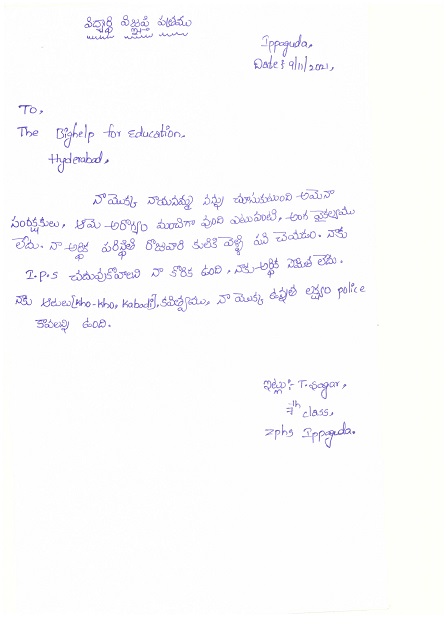 విద్యార్థి విజ్ఞప్తి పత్రము
Ippaguda,
Date: 9/11/2021,
To,
The Bighelp for Education.
Hyderabad,
నా యొక్క నాయనమ్మ నన్ను చూసుకుంటుంది ఆమెనా
సంరక్షకులు, ఆమె ఆరోగ్యం మంచిగా వుంది ఎటువంటి, అంగ వైకల్యము
లేదు. నా ఆర్థిక పరిస్థితి రోజువారి కులికి వెళ్ళి పని చేయడం. నాకు
I.P.S చదువుకోవాలని నా కోరిక ఉంది, నాకు ఆర్థిక స్తోమత లేదు.
నాకు ఆటలు[kho-kho, kabadi], కవిత్వము, నా యొక్క ఉన్నత లక్ష్యం police
కావాలన్ని ఉంది.
ఇట్లు:- T. Sagar,
7th class,
Zphs Ippaguda.